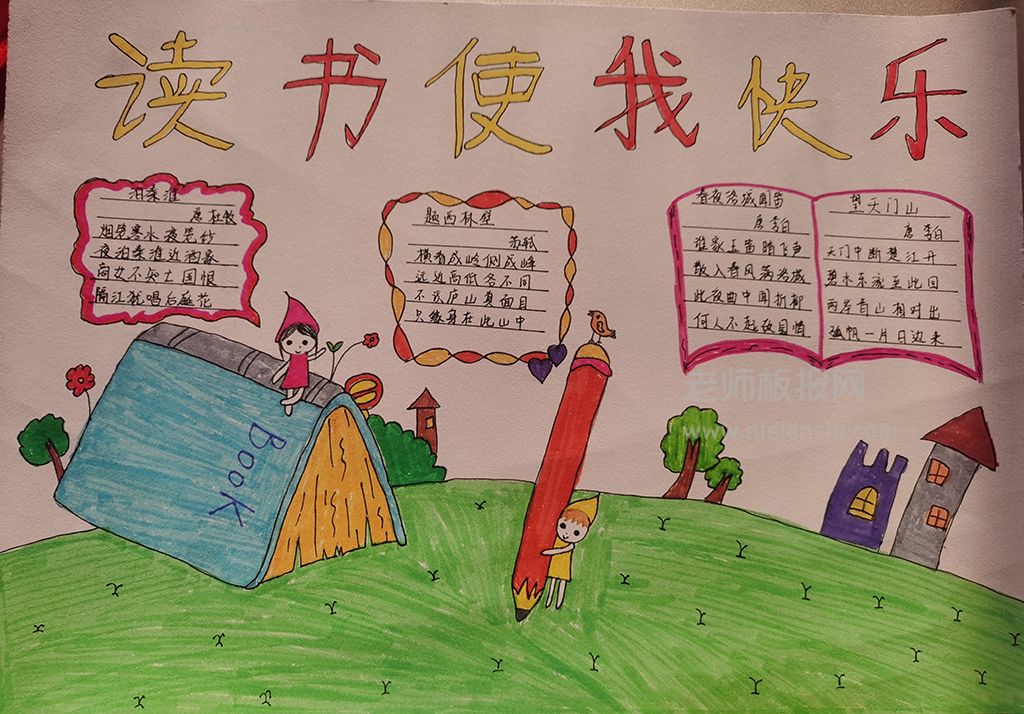 读书使我快乐
泊秦淮
唐 杜牧
烟笼寒水夜笼纱
夜泊秦淮近酒家
商女不知亡国恨
隔江犹唱后庭花
题西林壁
苏轼
横看成岭侧成峰
远近高低各不同
不识庐山真面目
只缘身在此山中
春夜洛城闻笛
唐 李白
谁家玉笛暗飞声
散入春风满洛城
此夜曲中闻折柳
何人不起故园情
望天门山
唐 李白
天门中断楚江开
碧水东流至此回
两岸青山相对出
孤帆一片日边来
BOOK
老师板报网